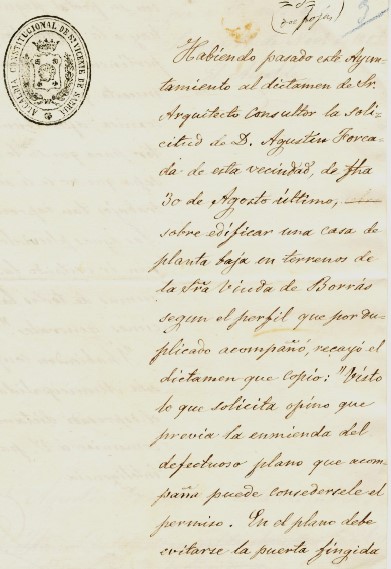 ALCALDIA CONSTITUCIONAL DE Sn VICENTE DE SARRIÁ
Habiendo pasado este Ayun-
tamiento al dictamen de Sr.
Arquitecto Consultor la soli-
citud de D. Agustin Forca-
da de esta vecindad, de fha
30 de Agosto último,
sobre edificar una casa de
planta baja en terrenos de
la Sra Viuda de Borrás
segun el perfil que por du-
plicado acompañó, recayó el
dictamen que copio: "Visto
lo que solicita opino que
previa la enmienda del
defectuoso plano que acom-
paña puede consedersele el
permiso. En el plano debe
evitarse la puerta fingida